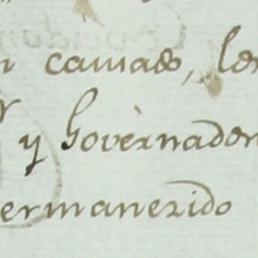 n camaes, le
r y Governador
ermanezido